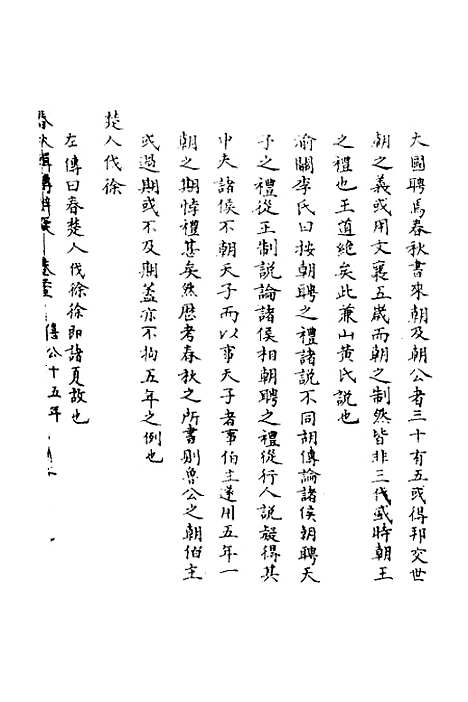 大國聘焉春秋書來朝及朝公者三十有五或得邦交世
朝之義或用文襄五歲而朝之制然皆非三代盛時朝王
之禮也王道絶矣此兼山黄氏說也
渝關李氏曰按朝聘之禮諸說不同胡傳論諸侯朝聘天
子之禮從王制說論諸侯相朝聘之禮從行人說疑得其
中夫諸侯不朝天子而以事天子者事伯主遂用五年一
朝之期悖禮甚矣然歴考春秋之所書則魯公之朝伯主
或過期或不及期蓋亦不拘五年之例也
楚人伐徐
左傳曰春楚人伐徐徐即諸夏故也
春秋輯傳辨疑 僖公十五年